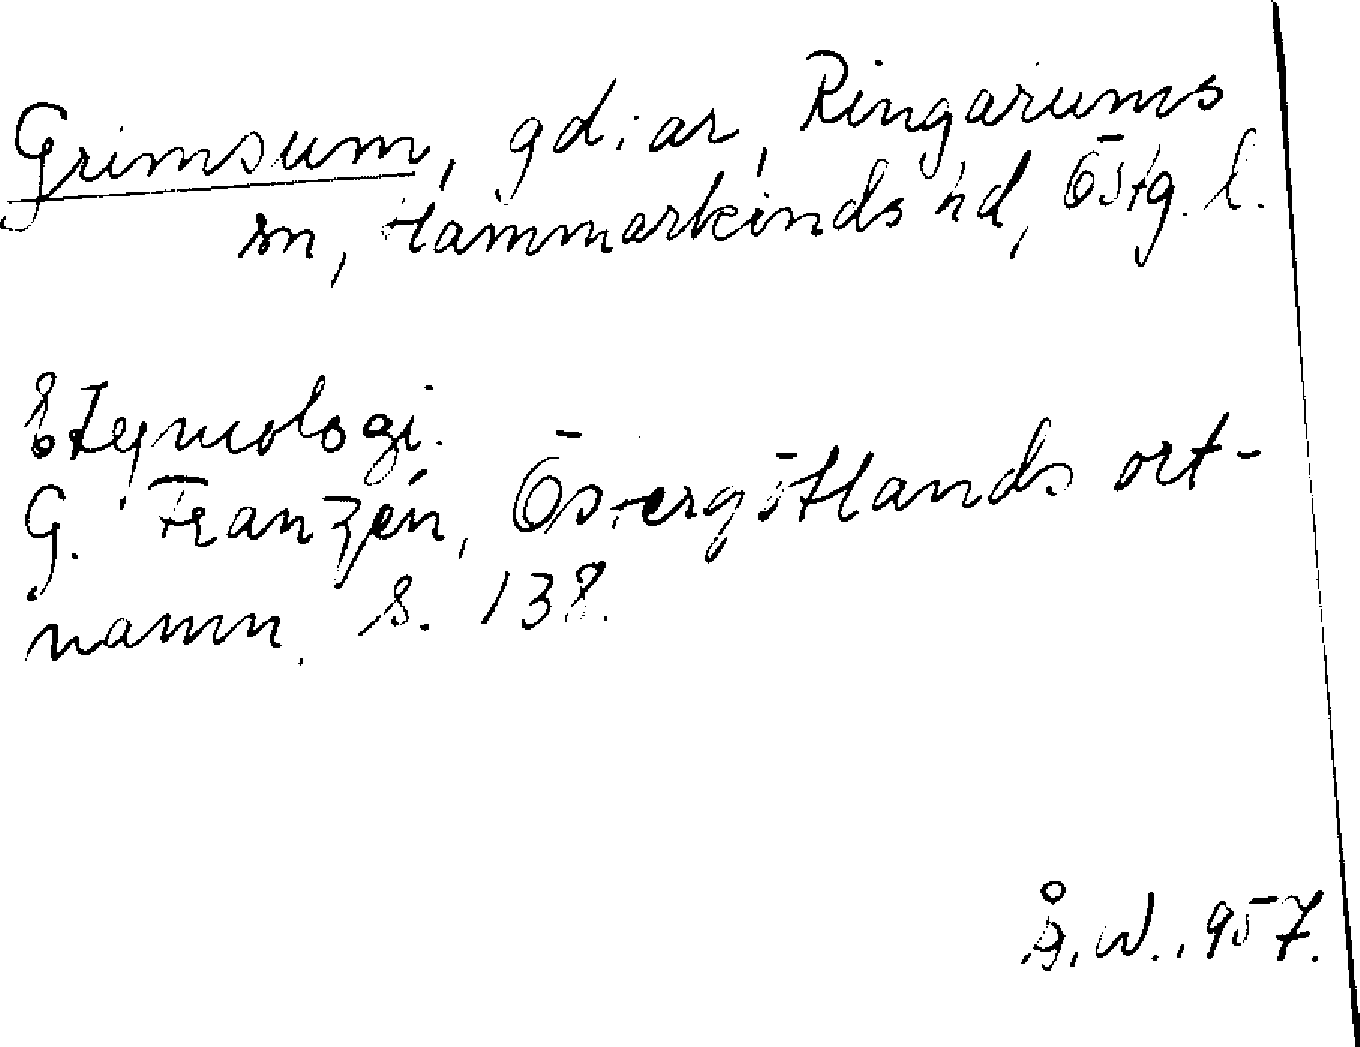 Grimsum, gd:ar, Ringarums
sn, Hammarkinds hd, Östg. l.
Etymologi.
G. Franzén, Östergötlands ort-
namn, s. 138.
Å. W. 1957.